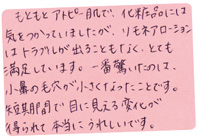 もともとアトピー肌で、化粧品には
気をつかっていましたが、リモネアローション
はトラブルが出ることもなく、とても
満足しています。一番驚いたのは、
小鼻の毛穴が小さくなったことです。
短期間で目に見える変化が
得られて本当にうれしいです。